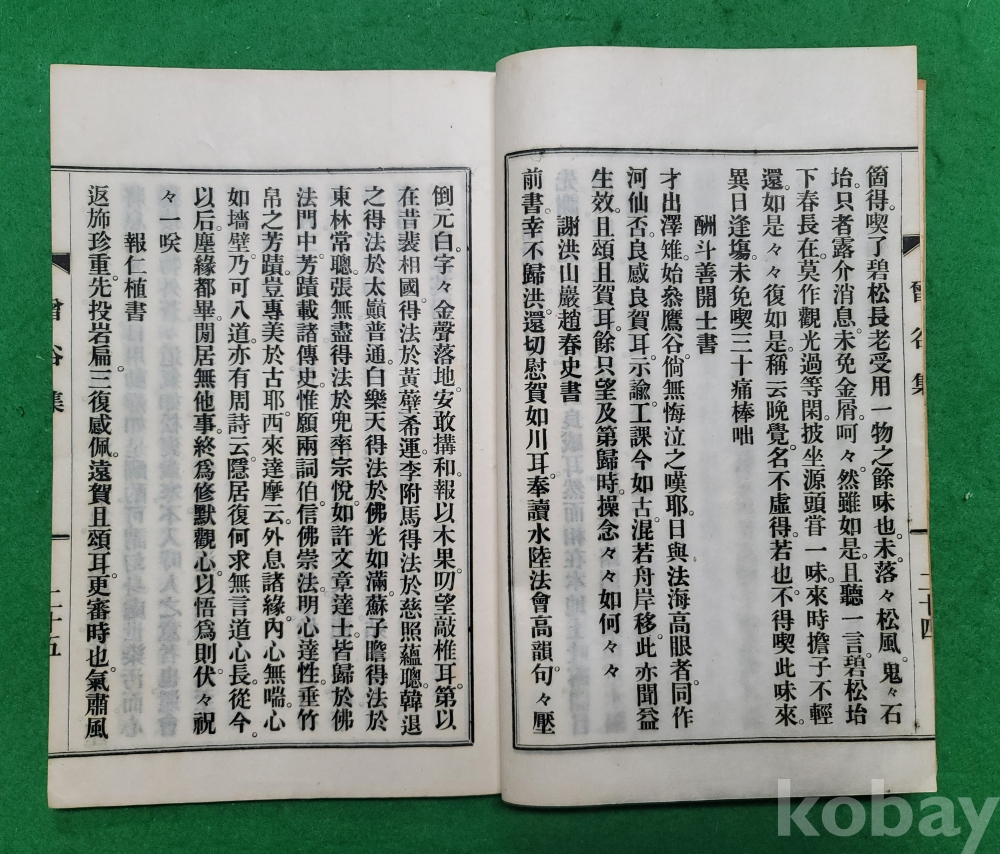 箇得。喫了碧松長老受用一物之餘味也。未。落々松風。鬼々石
坮。只者露介消息。未免金屑。呵々。然雖如是。且聽一言。碧松坮
下春長在。莫作觀光過等閑。披坐源頭甞一味。來時擔子不輕
還。如是々々。復如是。稱云晚覺。名不虛得。若也不得喫此味來。
異日逢塲。未免喫三十痛棒。咄
酬斗善開士書
才出澤雉。始叅鷹谷。倘無悔泣之嘆耶。日與法海高眼者。同作
河仙否。良感良賀耳。示諭。工課今如古。混若舟岸移。此亦聞益
生效。且頌且賀耳。餘只望及第歸時。操念々々。如何々々
謝洪山巖趙春史書
前書。幸不歸洪。還切慰賀如川耳。奉讀水陸法會高韻。句々壓
倒元白。字々金聲落地。安敢搆和。報以木果。叨望敲椎耳。第以
在昔裴相國。得法於黃蘗希運。李附馬得法於慈照蘊聰。韓退
之得法於太顚普通。白樂天得法於佛光如滿。蘇子瞻得法於
東林常聰。張無盡得法於兜率宗悅。如許文章達士。皆歸於佛
法門中。芳蹟載諸傳史。惟願兩詞伯。信佛崇法。明心達性。垂竹
帛之芳蹟。豈專美於古耶。西來達摩云。外息諸緣。內心無喘。心
如墻壁。乃可八道。亦有周詩云。隱居復何求。無言道心長。從今。
以后。塵緣都畢。閒居無他事。終爲修默觀心。以悟爲則。伏々祝
々。一咲
報仁植書
返旆珍重。先投岩扃。三復感佩。遠賀且頌耳。更審時也。氣肅風
曾谷集
二十四
曾谷集
二十五
kobay